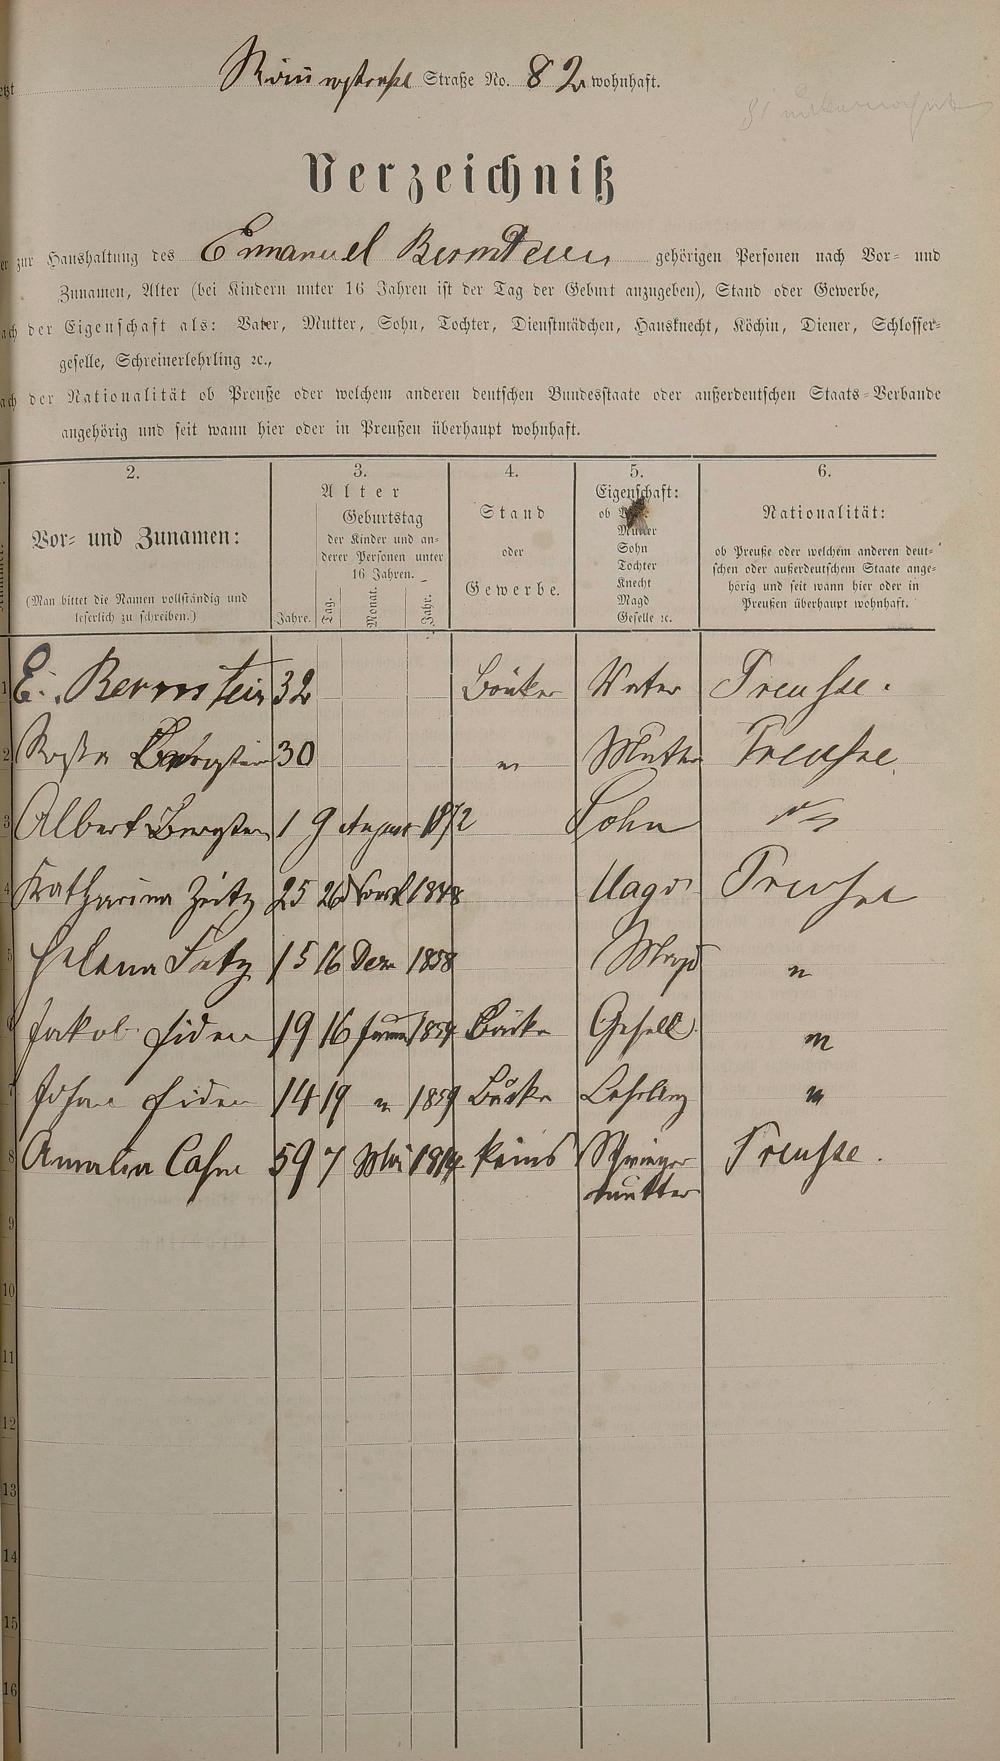 Straße No. 82 wohnhaft.
Verzeichniß
zur Haushaltung des Emanuel Bernstein gehörigen Personen nach Vor- und
Zunamen, Alter (bei Kindern unter 16 Jahren ist der Tag der Geburt anzugeben), Stand oder Gewerbe,
der Eigenschaft als: Vater, Mutter, Sohn, Tochter, Dienstmädchen, Hausknecht, Köchin, Diener, Schlosser-
geselle, Schreinerlehrling ꝛc.,
der Nationalität ob Preuße oder welchem anderen deutschen Bundesstaate oder außerdeutschen Staats-Verbande
angehörig und seit wann hier oder in Preußen überhaupt wohnhaft.
2. 3. 4. 5. 6.
Vor- und Zunamen:
(Man bittet die Namen vollständig und
leserlich zu schreiben.)
Alter
Geburtstag
der Kinder und an-
derer Personen unter
16 Jahren.
Jahre. Tag. Monat. Jahr.
Stand
oder
Gewerbe.
Eigenschaft:
ob
Mutter
Sohn
Tochter
Knecht
Magd
Geselle ꝛc.
Nationalität:
ob Preuße oder welchem anderen deut-
schen oder außerdeutschem Staate ange-
hörig und seit wann hier oder in
Preußen überhaupt wohnhaft.
1 E. Bernstein 32 Bäcker Vater Preusse.
2 Rosa 30 " Mutter Preusse
3 Albert 1 9 August 1872 Sohn "
4 Katharina Zeitz 25 26 1848 Magd Preusse
5 Helena 15 16 Dez 1858 Magd "
6 Jakob Fiden 19 16 Bäcker Gesell "
7 Johan Fiden 14 19 " 1859 Bäcker Lehrling "
8 Amalia Cahn 59 7 Mai 1814 keins Schwieger Preusse.
mutter
9
10
11
12
13
14
15
16